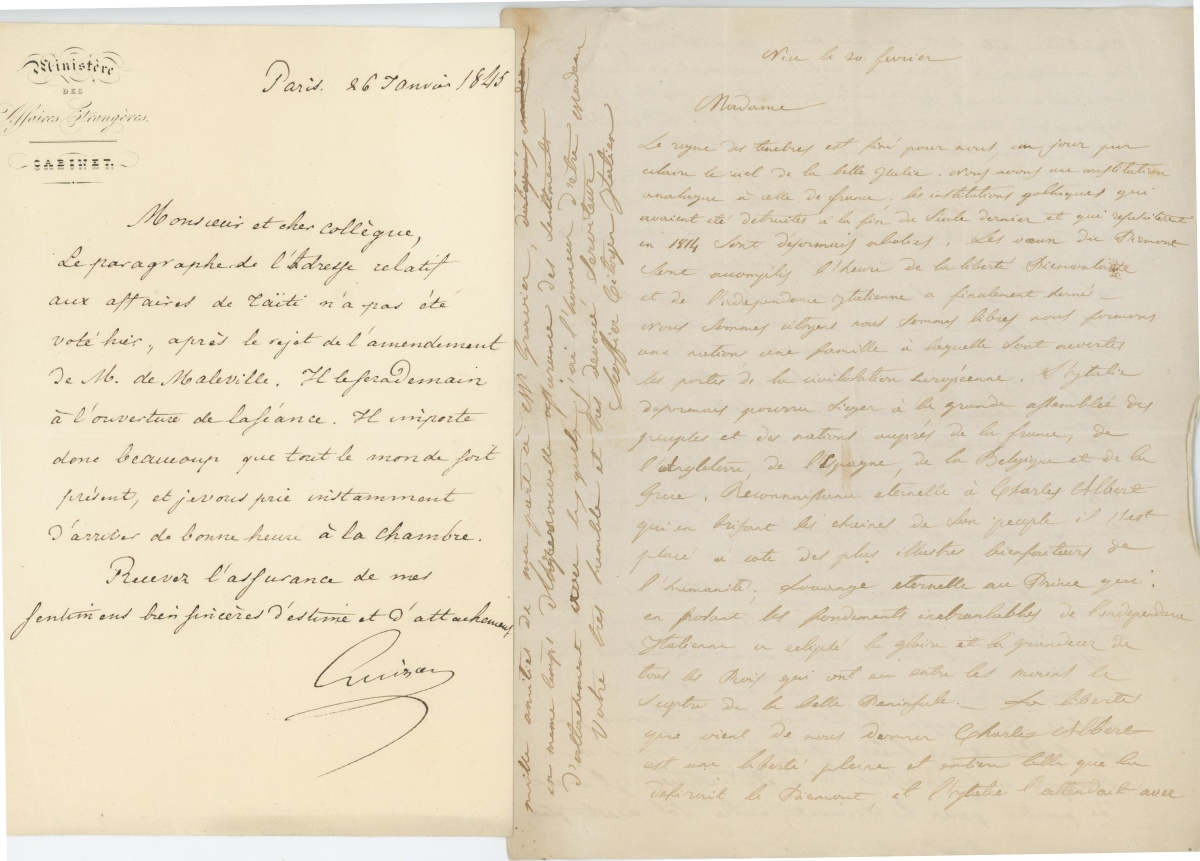 Ministère
DES
Affaires Etrangères.
CABINET.
Paris. 26 Janvier 1845
Monsieur et cher collègue,
Le paragraphe de l'Adresse relatif
aux affaires de Taïti n'a pas été
voté hier, après le rejet de l'amendement
de M. de Maleville. Il le sera demain
à l'ouverture de la séance. Il importe
donc beaucoup que tout le monde soit
présent, et je vous prie instamment
d'arriver de bonne heure à la Chambre.
Recevez l'assurance de mes
sentimens bien sincères d'estime et d'attachement
Guizot
Nice le 20 fevrier
Madame
Le regne des tenebres est fini pour nous, un jour pur
eclaire le ciel de la belle Italie. Nous avons une constitution
analogue à celle de france, les institutions gothiques qui
avaient été detruites à la fin du siecle dernier et qui
en 1814 sont désormais abolies. Les vœux du Piemont
sont accomplis l'heure de la liberté Piemontaise
et de l'independance Italienne a finalement sonné –
Nous sommes citoyens nous sommes libres nous formons
une nation une famille à laquelle sont ouvertes
les portes de la civilisation européenne. L'Italie
desormais pourra sieger à la grande assemblée des
peuples et des nations auprés de la france, de
l'Angleterre, de l'Espagne, de la Belgique et de la
Grece. Reconnaissance eternelle à Charles Albert
qui en brisant les chaines de son peuple il s'est
placé a coté des plus illustres bienfaiteurs de
l'humanité. Louange eternelle au Prince qui
en posant les fondements inebranlables de l'independance
Italienne a eclipsé la gloire et la grandeur de
tous les Rois qui ont eu entre les mains le
sceptre de la belle Peninsule. – La liberté
que vient de nous donner Charles Albert
est une liberté pleine et entiere telle que la
desirait le Piemont, et l'Italie l'attendait avec
mille amitiés de ma part à Mr Granier,
en meme temps l'assurance des sentiments
d'attachement avec lesquels j'ai l'honneur d'etre Madame
Votre tres humble et tres devoué Serviteur
Citoyen Italien